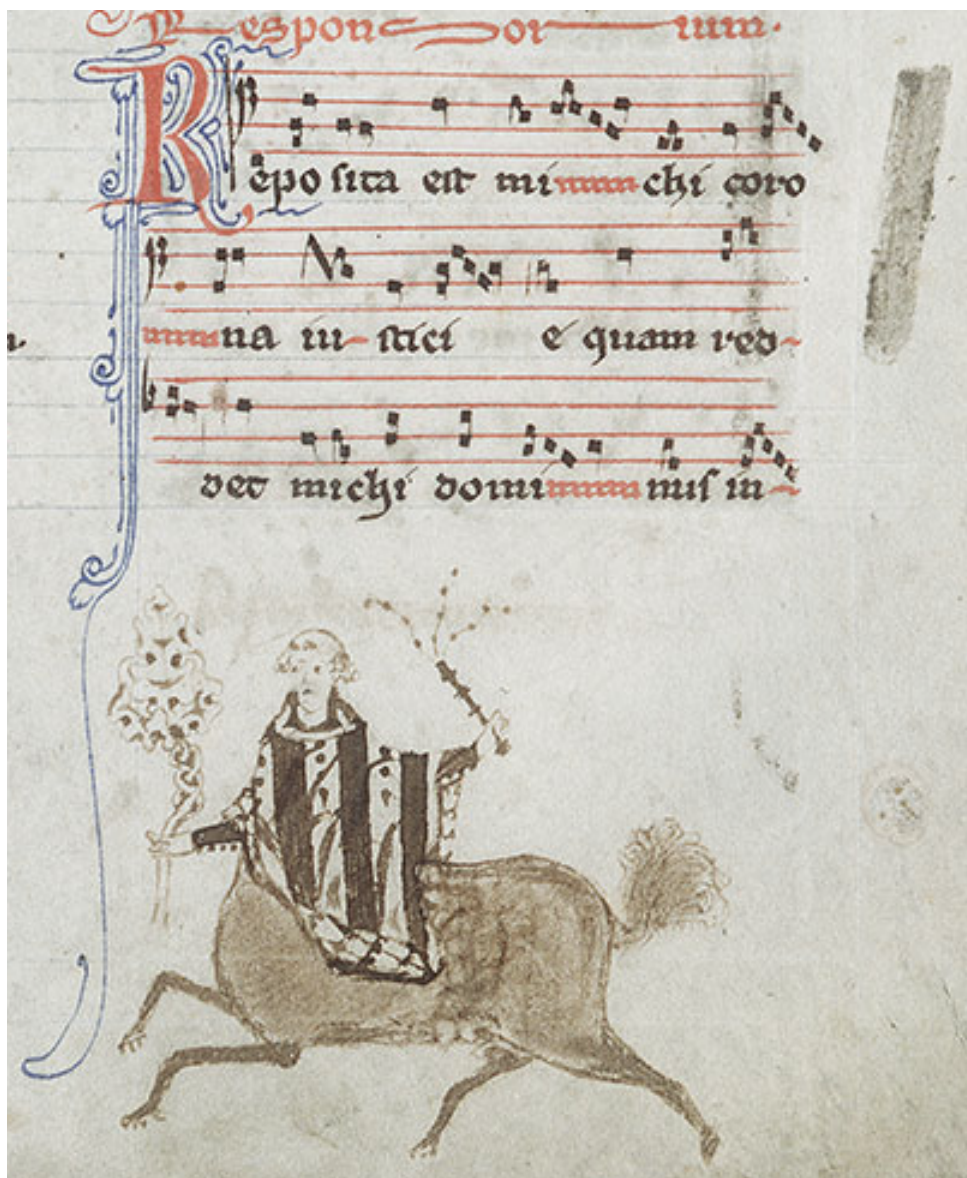 Responsorium.
Reposita est mi chi coro
na iu- stici e quam red-
det michi domi nus in-